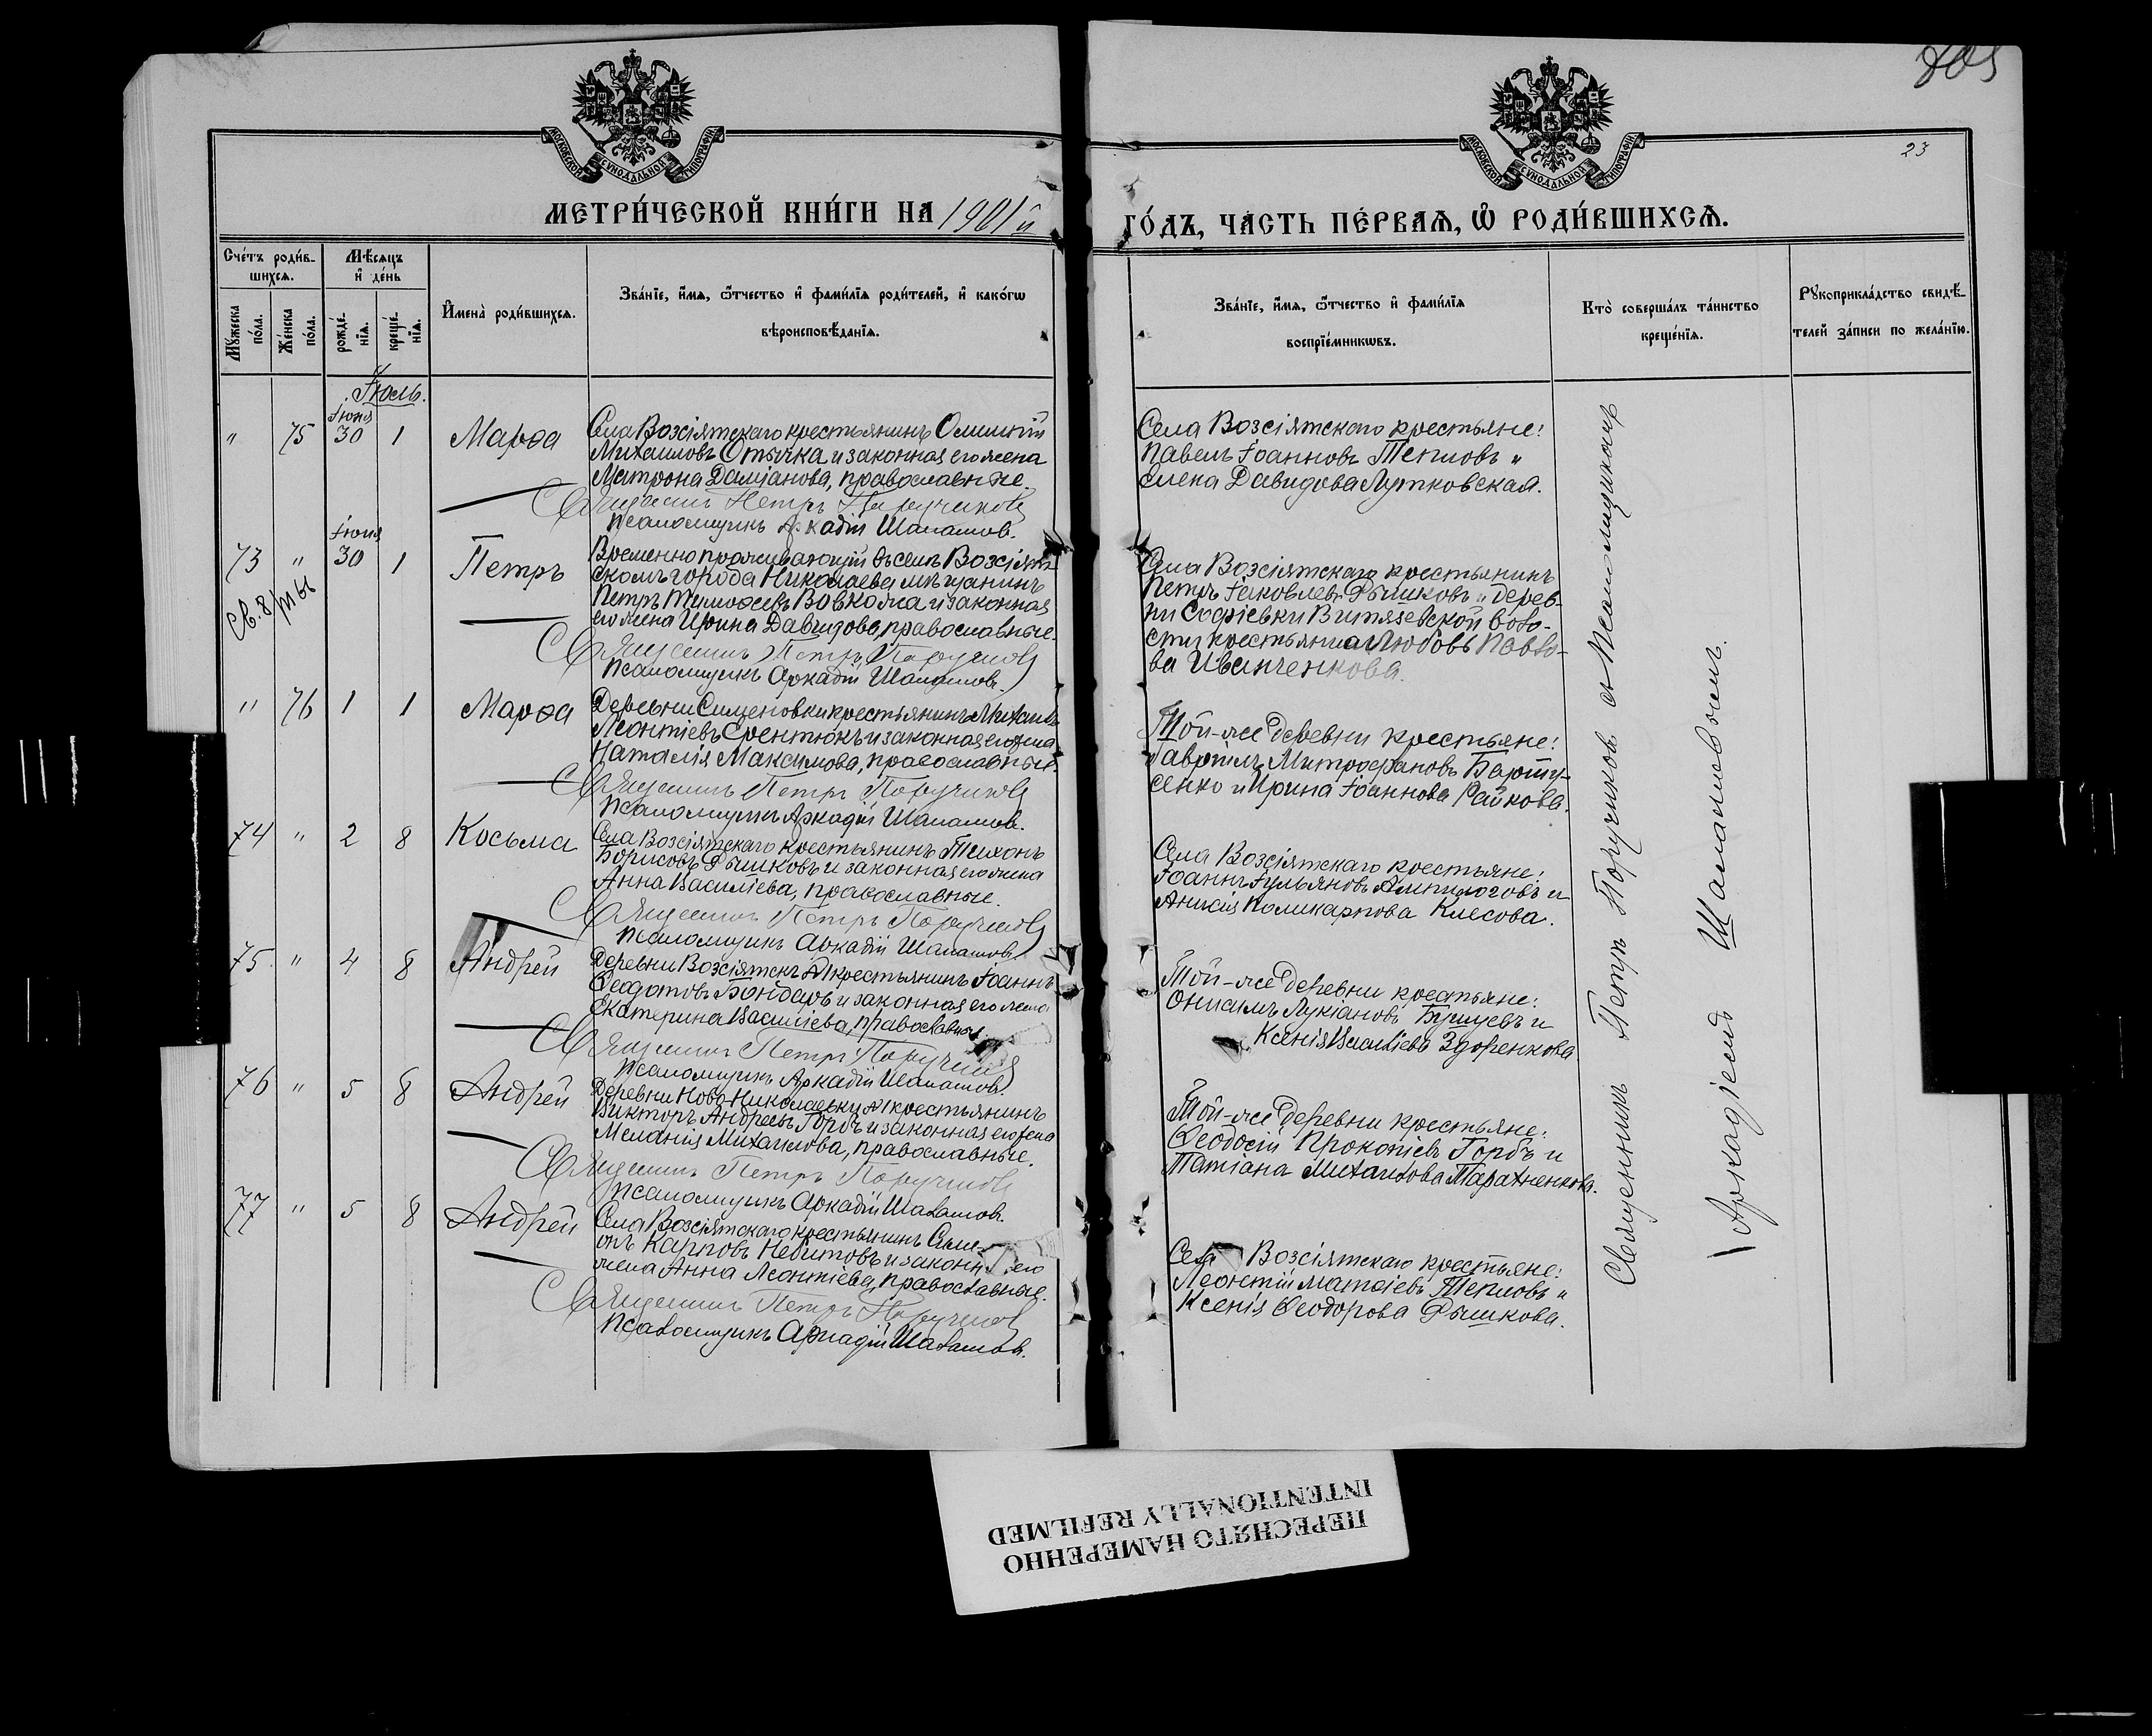 805
23
МОСКОВСКОЙ СУНОДАЛЬНОЙ ТИПОГРАФІИ
МОСКОВСКОЙ СУНОДАЛЬНОЙ ТИПОГРАФІИ
МЕТРИ́ЧЕСКОЙ КНИ́ГИ НА 1901й
ГО́ДЪ, ЧА́СТЬ ПЕ́РВАѦ, Ѿ РОДИ́ВШИХСѦ.
Сче́тъ роди́в-
шихсѧ.
Мѣ́сѧцъ
и҆ де́нь
Мꙋ́жеска
по́ла.
Же́нска
по́ла.
рожде́-
нїѧ.
креще́-
нїѧ.
И҆мена̀ роди́вшихсѧ.
Зва́нїе, и҆́мѧ, ѻ҆́тчество и҆ фами́лїѧ роди́телей, и҆ како́гѡ
вѣроисповѣ́данїѧ.
Зва́нїе, и҆́мѧ, ѻ҆́тчество и҆ фами́лїѧ
воспрїе́мникѡвъ.
Кто̀ соверша́лъ та́инство
креще́нїѧ.
Рꙋкоприкла́дство свидѣ́-
телей за́писи по жела́нїю.
Іюль.
Іюня
" 75 30 1 Марѳа
Села Возсіятскаго крестьянинъ
Михаиловъ Отычка и законная его жена
Матрона Даміанова, православные.
Священникъ Петръ Поручиковъ
Псаломщикъ Аркадій Шаламовъ.
Села Возсіятскаго крестьяне:
Павелъ Іоанновъ Тепловъ и
Елена Давидова Лутковская.
Іюня
73 " 30 1 Петръ
Временно проживающій въ селѣ Возсіят-
скомъ города Николаева мѣщанинъ
Петръ Тимоѳеевъ и законная
его жена Ирина Давидова, православные.
Священникъ Петръ Поручиковъ
Псаломщикъ Аркадій Шаламовъ.
Села Возсіятскаго крестьянинъ
Петръ Іаковлевъ Рышковъ и дерев-
ни Софіевки Витязевской воло-
сти крестьянка Любовь Павло-
ва Иванченкова.
" 76 1 1 Марѳа
Деревни Сименовки крестьянинъ Михаилъ
Леонтіевъ и законная его жена
Наталія Максимова, православные.
Священникъ Петръ Поручиковъ
Псаломщикъ Аркадій Шаламовъ.
Той-же деревни крестьяне:
Гавріилъ Митрофановъ
и Ирина Іоаннова Райкова.
74 " 2 8 Косьма
Села Возсіятскаго крестьянинъ Тихонъ
Борисовъ Рышковъ и законная его жена
Анна Василіева, православные.
Священникъ Петръ Поручиковъ
Псаломщикъ Аркадій Шаламовъ.
Села Возсіятскаго крестьяне:
Іоаннъ Іульяновъ Алтилоговъ и
Анисія Поликарпова Клесова.
75 " 4 8 Андрей
Деревни Возсіятскъ крестьянинъ Іоаннъ
Ѳеодотовъ Бондарь и законная его жена
Екатерина Василіева, православные.
Священникъ Петръ Поручиковъ
Псаломщикъ Аркадій Шаламовъ.
Той-же деревни крестьяне:
Онисимъ Лукіановъ Бушуевъ и
Ксенія Василіева Здоренкова
76 " 5 8 Андрей
Деревни Ново-Николаевки крестьянинъ
Викторъ Андреевъ Горбъ и законная его жена
Меланія Михаилова, православные.
Священникъ Петръ Поручиковъ
Псаломщикъ Аркадій Шаламовъ.
Той-же деревни крестьяне:
Ѳеодосій Прокопіевъ Горбъ и
Татіана Михаилова Тарахненкова.
77 " 5 8 Андрей
Села Возсіятскаго крестьянинъ Симе-
онъ Карповъ Небитовъ и законн его
жена Анна Леонтіева, православные.
Священникъ Петръ Поручиковъ
Псаломщикъ Аркадій Шаламовъ.
Села Возсіятскаго крестьяне:
Леонтій Матѳіевъ Тепловъ и
Ксенія Ѳеодорова Рышкова.
Священникъ Петръ Поручиковъ съ Псаломщикомъ
Аркадіемъ Шаламовымъ.
ПЕРЕСНЯТО НАМЕРЕННО
INTENTIONALLY REFILMED